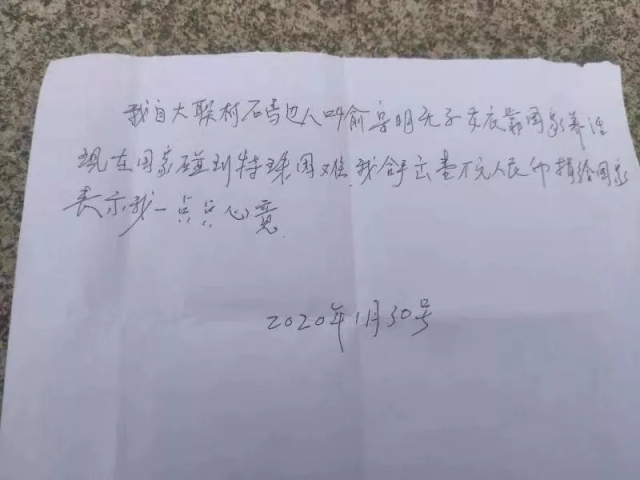 我自大联村石马边人叫俞守明无子女衣靠国家养活
现在国家碰到特殊困难.我拿出壹万元人民币捐给国家
表示我一点点心意.
2020年1月30号